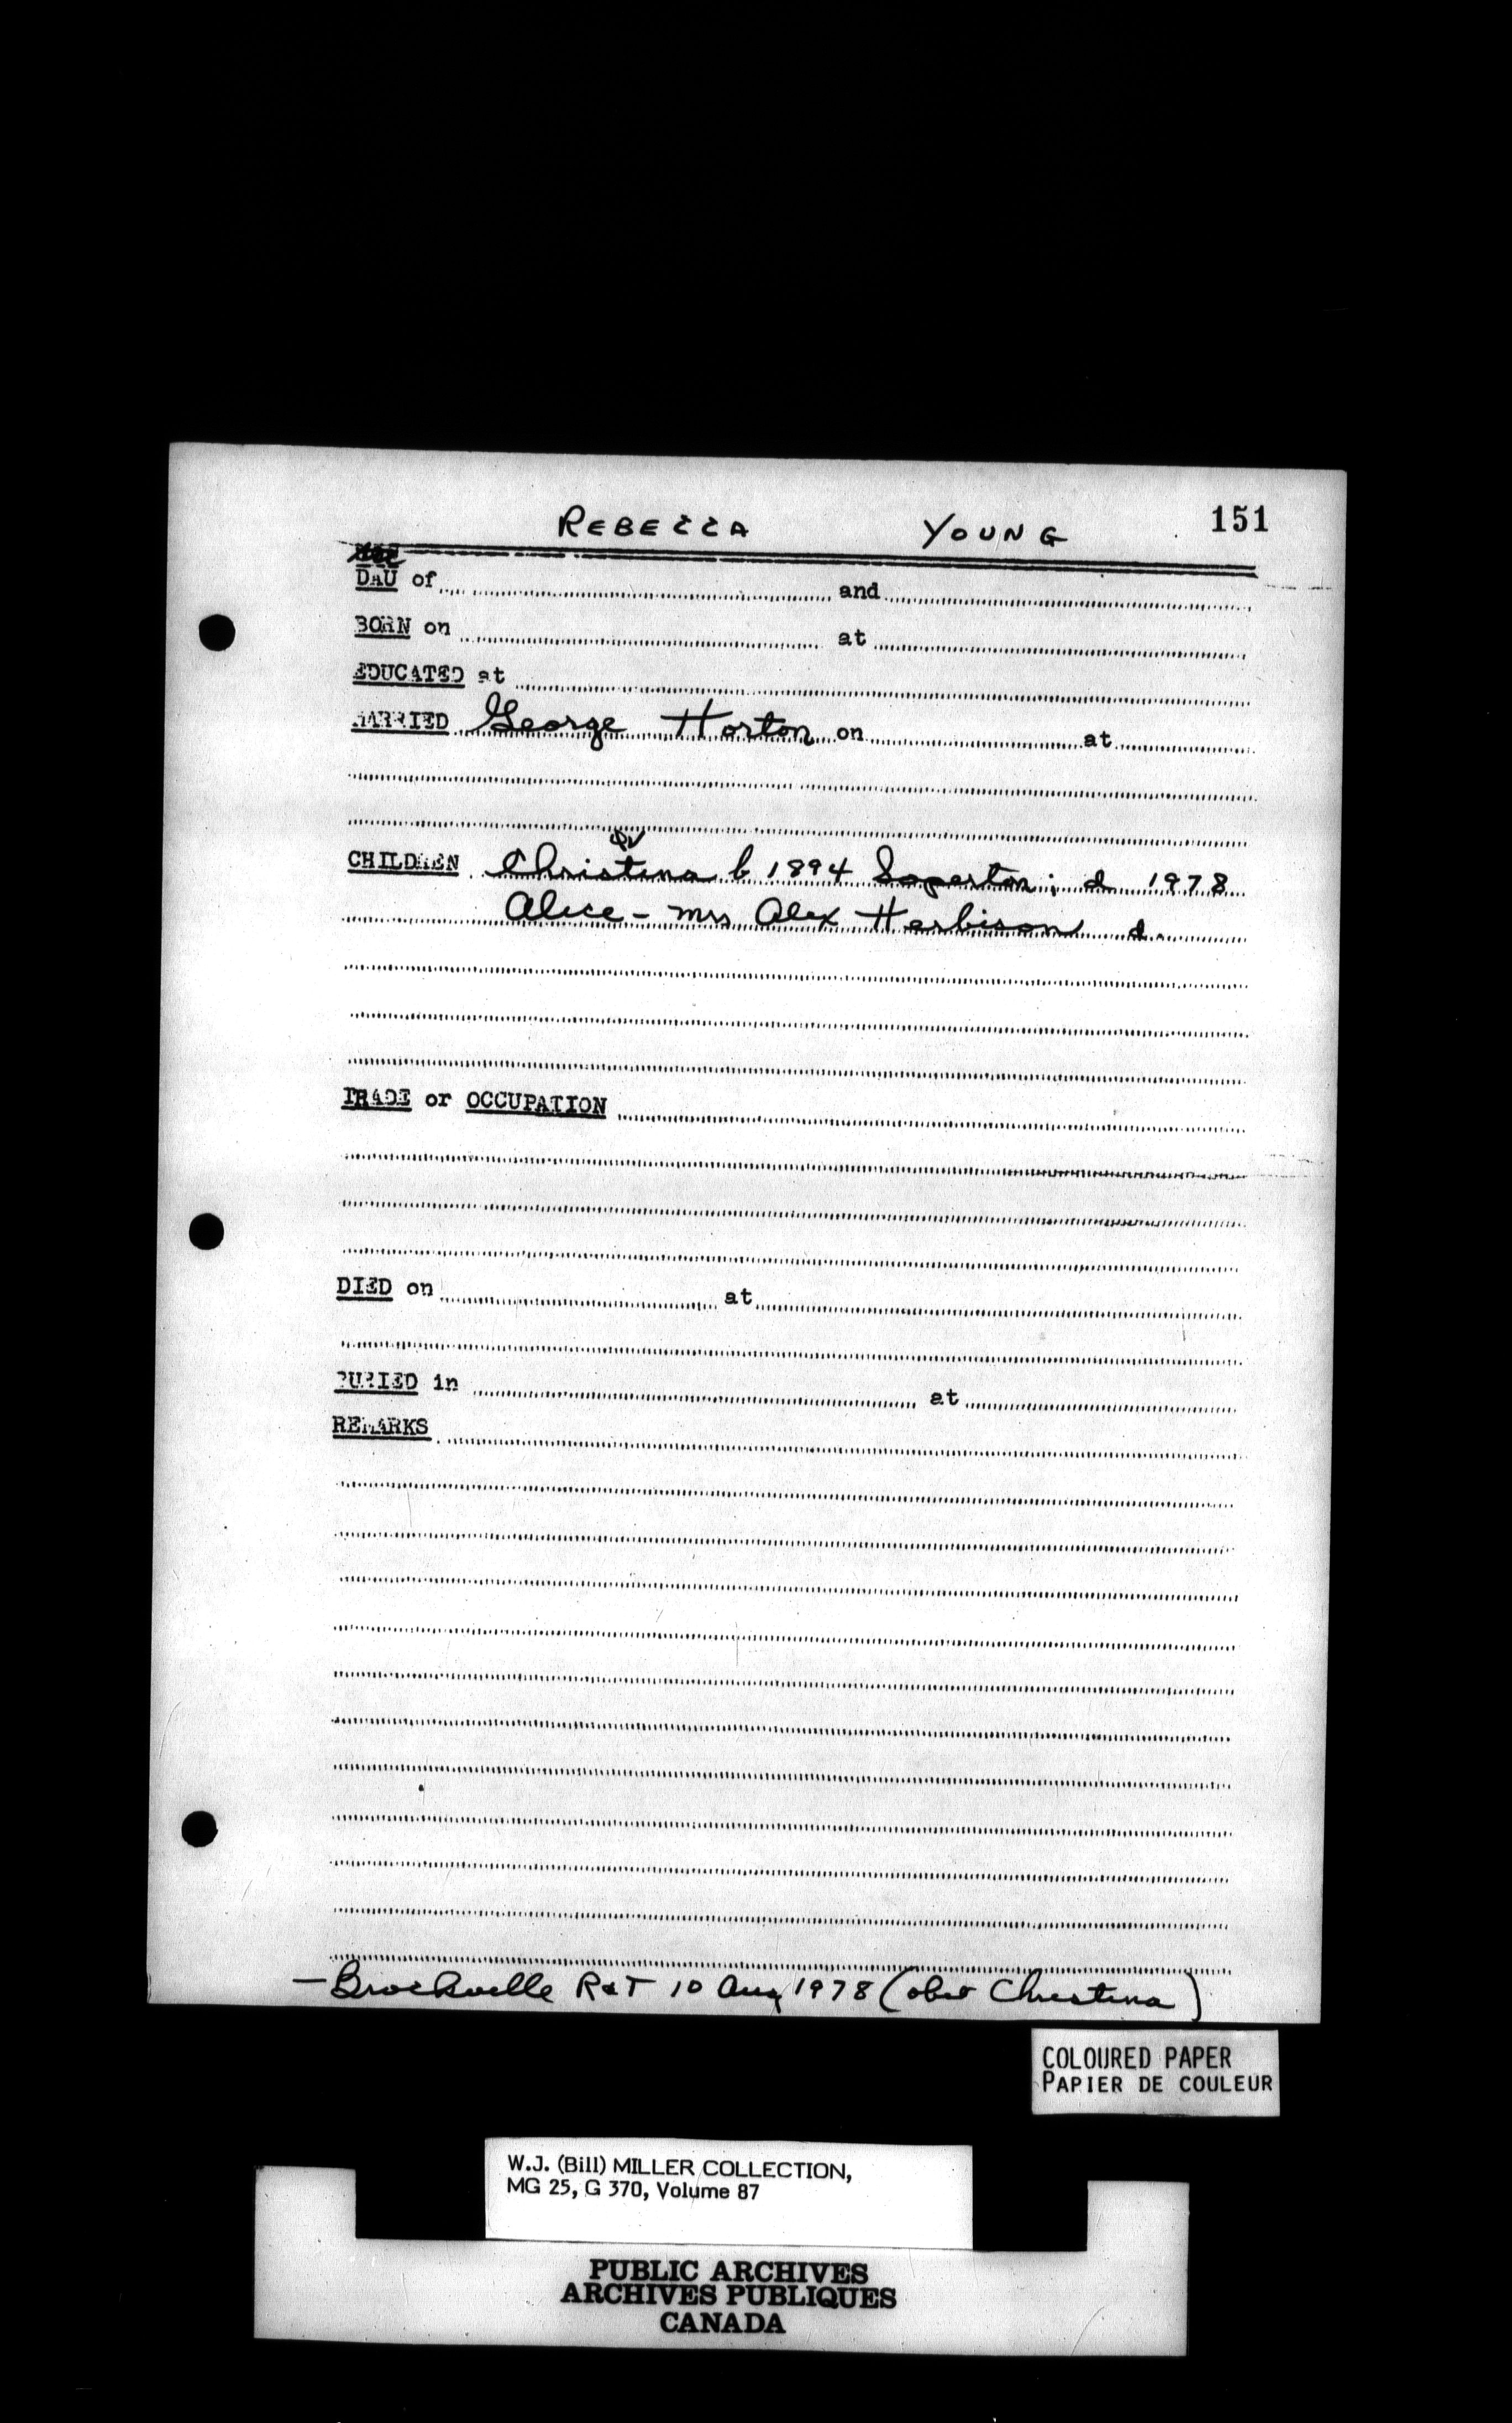 REBECCA YOUNG 151
DAU of and
BORN on at
EDUCATED at
MARRIED George Horton on at
QV
CHILDREN Christina b 1894 Soperton; d 1978
Alice - Mrs Alex Herbison d.
TRADE or OCCUPATION
DIED on at
BURIED in at
REMARKS
- Brockville R&T 10 Aug 1978 (obit Christina)
COLOURED PAPER
PAPIER DE COULEUR
W.J. (Bill) MILLER COLLECTION,
MG 25, G 370, Volume 87
PUBLIC ARCHIVES
ARCHIVES PUBLIQUES
CANADA